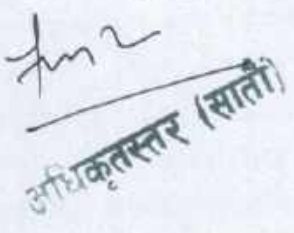 अधिकृतस्तर (सातौं)